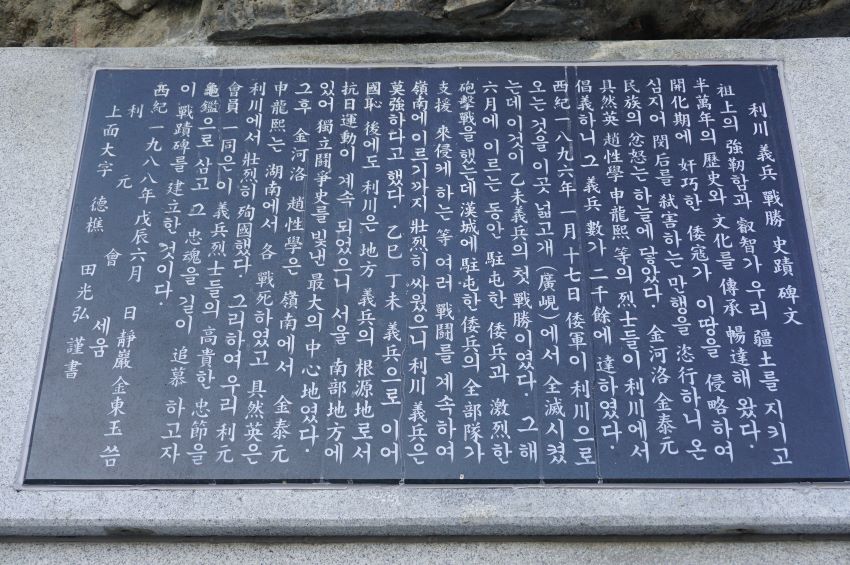 利川 義兵 戰勝 史蹟 碑文
祖上의 強勒함과 叡智가 우리 疆土를 지키고
半萬年의 歷史와 文化를 傳承 暢達해 왔다.
開化期에 奸巧한 倭寇가 이땅을 侵略하여
심지어 閔后를 弑害하는 만행을 恣行하니 온
民族의 忿怒는 하늘에 닿았다. 金河洛 金泰元
具然英 趙性學 申龍熙 等의 烈士들이 利川에서
倡義하니 그 義兵 數가 二千餘에 達하였다.
西紀 一八九六年 一月 十七日 倭軍이 利川으로
오는 것을 이곳 넓고개 (廣峴)에서 全滅시켰
는데 이것이 乙未義兵의 첫 戰勝이였다. 그 해
六月에 이르는 동안 駐屯한 倭兵과 激烈한
砲擊戰을 했는데 漢城에 駐屯한 倭兵의 全部隊가
支援 來侵케 하는 等 여러 戰鬪를 계속하여
嶺南에 이르기까지 壯烈히 싸웠으니 利川 義兵은
莫強하다고 했다. 乙巳 丁未 義兵으로 이어
國恥 後에도 利川은 地方 義兵의 根源地로서
抗日運動이 계속 되었으니 서울 南部地方에
있어 獨立鬪爭史를 빛낸 最大의 中心地였다.
그후 金河洛 趙性學은 嶺南에서 金泰元
申龍熙는 湖南에서 各 戰死하였고 具然英은
利川에서 壯烈히 殉國했다. 그리하여 우리 利元
會員 一同은 이 義兵烈士들의 高貴한 忠節을
龜鑑으로 삼고 그 忠魂을 길이 追慕 하고자
이 戰蹟碑를 建立한 것이다.
西紀 一九八八年 戊辰 六月 日 靜巖 金東玉 씀
利 元 會 세움
上面大字 德樵 田光弘 謹書